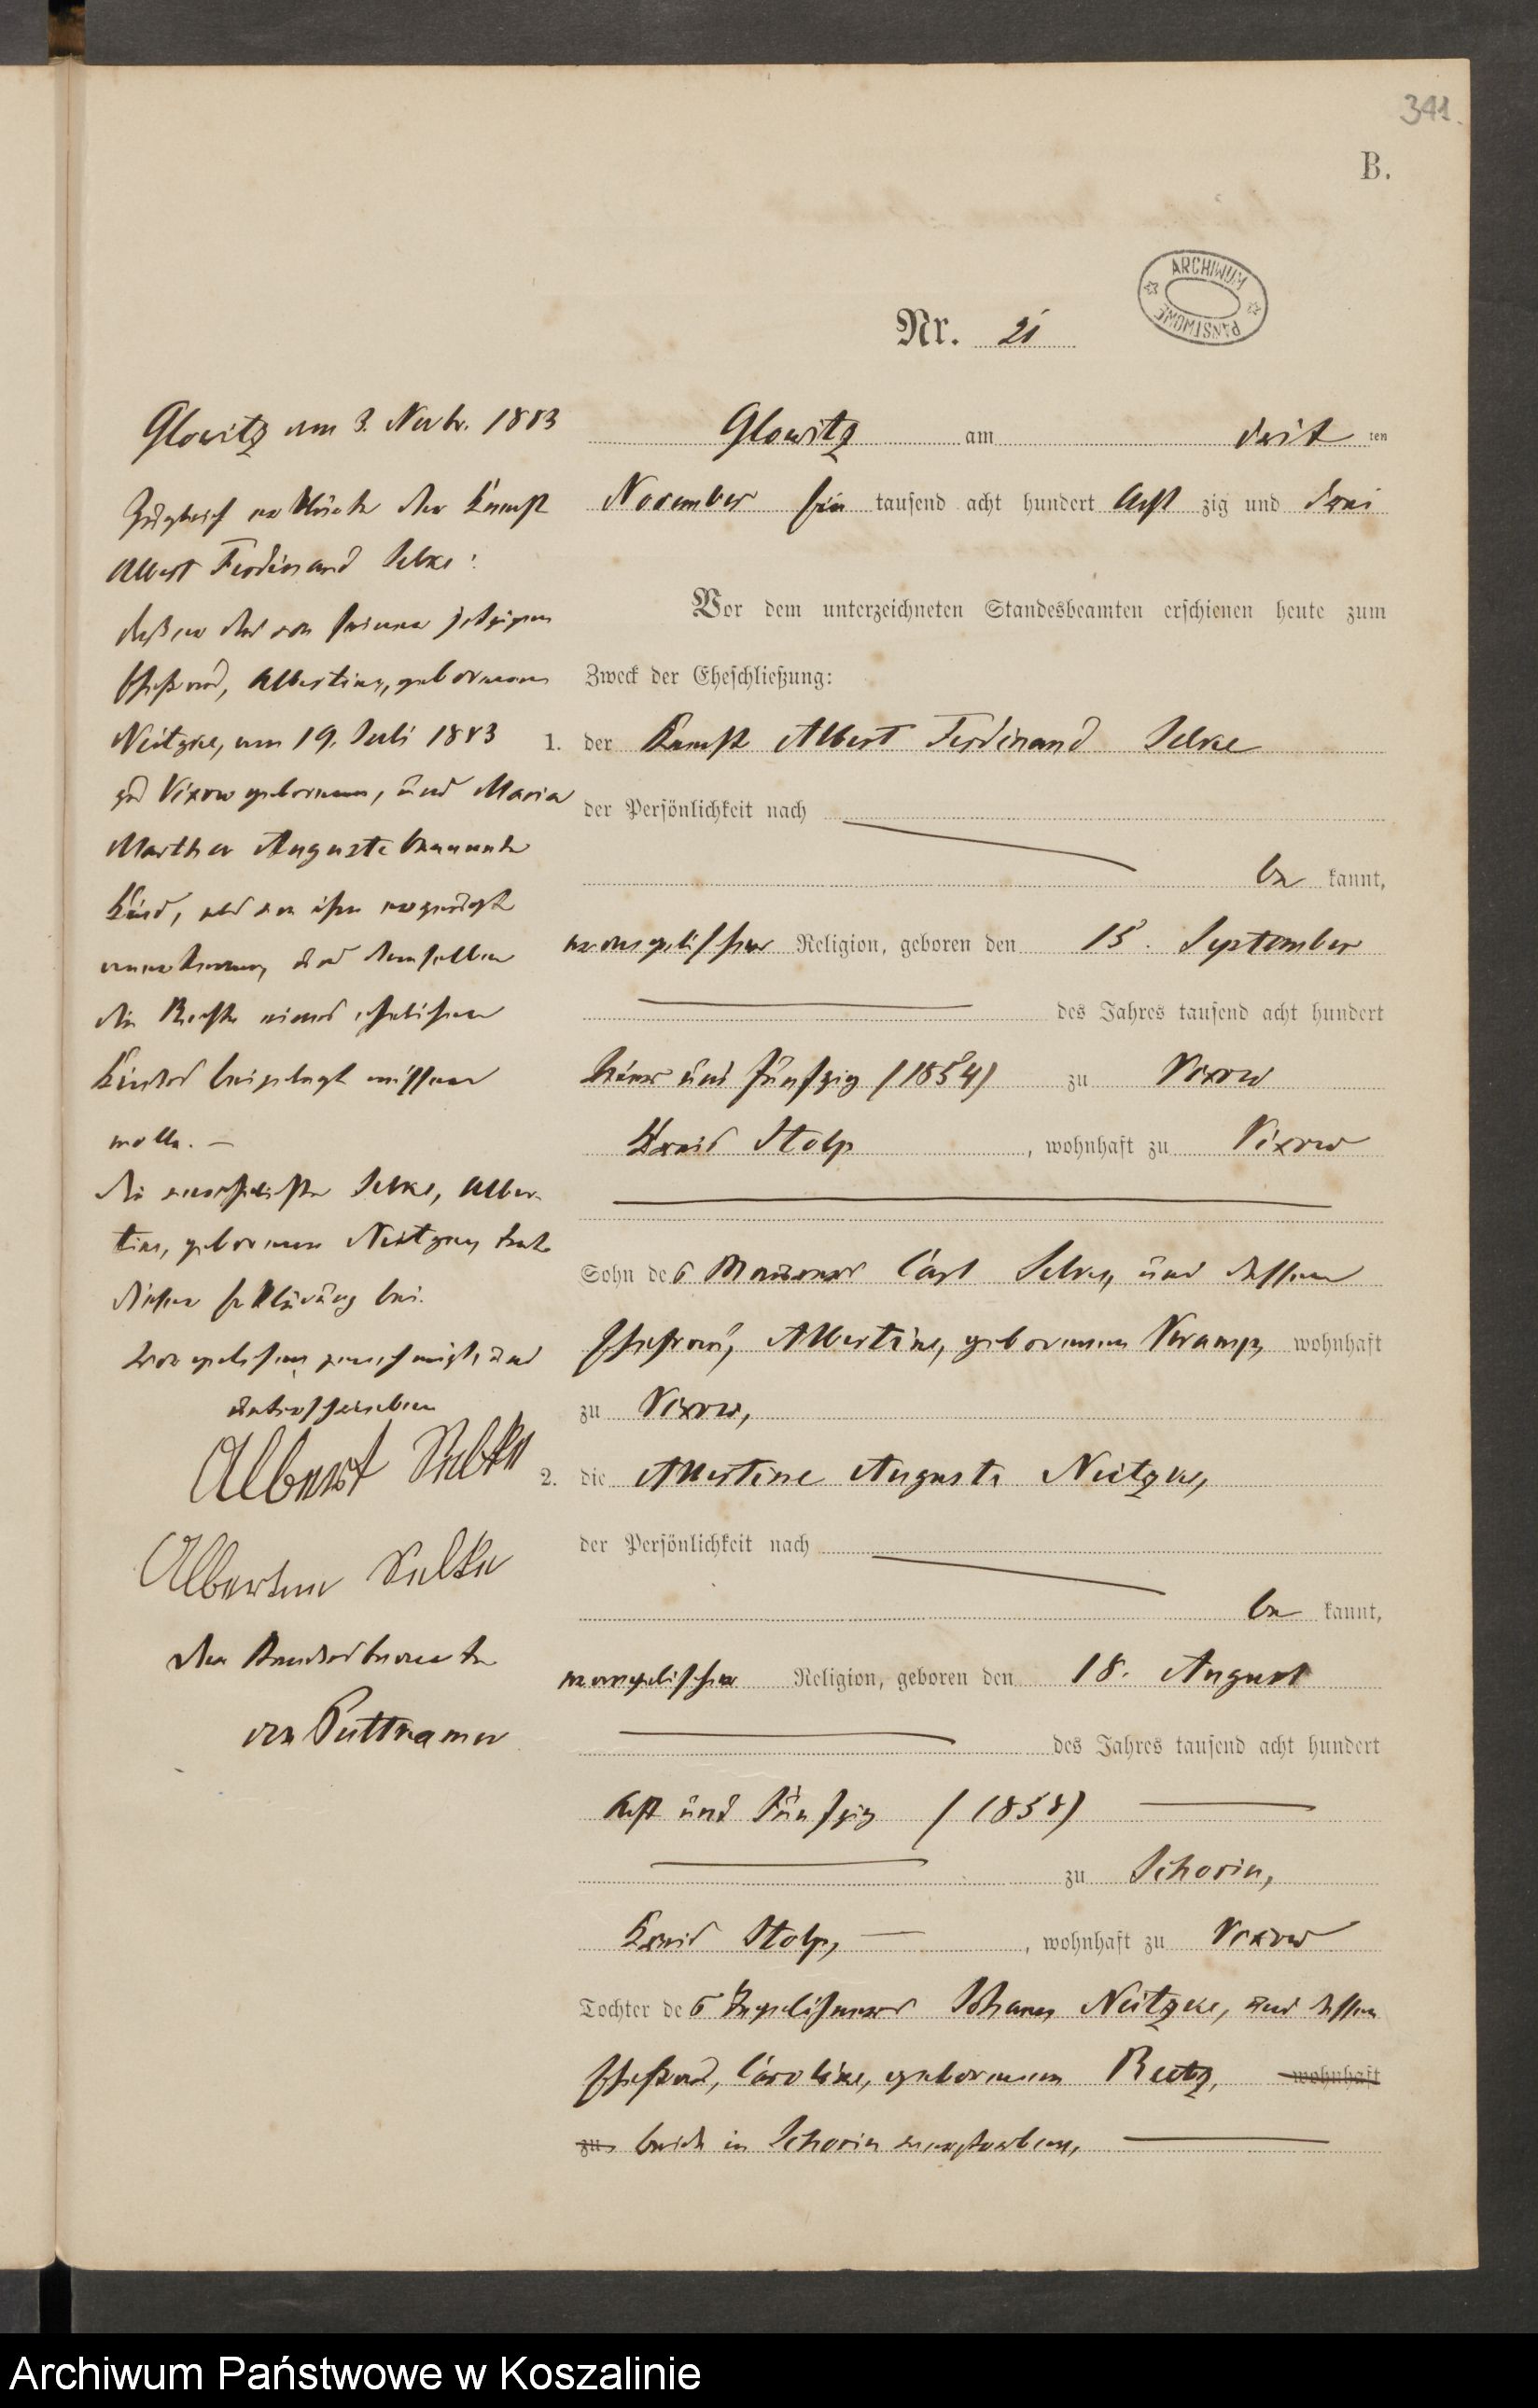 341.
B.
ARCHIWUM PAŃSTWOWE
Nr. 21
Glowitz am 3. Novbr. 1883
Zugleich erklärte der Knecht
Albert Ferdinand Selke:
daß er das von seiner jetzigen
Ehefrau, Albertine, geborenen
Neitzke, am 19. Juli 1883
zu Vixow geborene, und Maria
Martha Auguste benannte
Kind, als von ihm erzeugt
anerkenne, und demselben
die Rechte eines ehelichen
Kindes beigelegt wissen
wolle. —
Die verehelichte Selke, Alber-
tine, geborene Neitzke, trat
dieser Erklärung bei.
Vorgelesen, genehmigt und
unterschrieben
Albert Selke
Albertine Selke
Der Standesbeamte
von Puttkamer
Glowitz am dritten
November Ein tausend acht hundert Acht zig und drei
Vor dem unterzeichneten Standesbeamten erschienen heute zum
Zweck der Eheschließung:
1. der Knecht Albert Ferdinand Selke
der Persönlichkeit nach
be kannt,
evangelischer Religion, geboren den 15. September
des Jahres tausend acht hundert
Vier und fünfzig (1854) zu Vixow
Kreis Stolp, wohnhaft zu Vixow
Sohn des Maurers Carl Selke, und dessen
Ehefrau, Albertine, geborenen Kramp, wohnhaft
zu Vixow,
2. die Albertine Auguste Neitzke,
der Persönlichkeit nach
be kannt,
evangelischer Religion, geboren den 18. August
des Jahres tausend acht hundert
Acht und fünfzig (1858)
zu Schorin,
Kreis Stolp, — , wohnhaft zu Vixow
Tochter des Tagelöhners Johann Neitzke, und dessen
Ehefrau, Caroline, geborenen Reetz, wohnhaft
zu beide in Schorin verstorben,
Archiwum Państwowe w Koszalinie